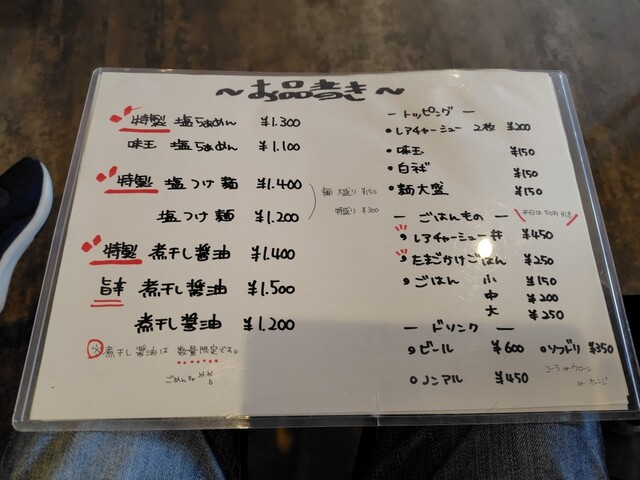 ～お品書き～
特製 塩らぁめん ¥1.300
味玉 塩らぁめん ¥1.100
特製 塩つけ麺 ¥1.400
塩つけ麺 ¥1.200
麺 大盛り ¥150
特盛り ¥300
特製 煮干し醤油 ¥1.400
旨辛 煮干し醤油 ¥1.500
煮干し醤油 ¥1.200
※煮干し醤油は 数量限定です。
ートッピングー
レアチャーシュー 2枚 ¥200
味玉 ¥150
白ネギ ¥150
麺大盛 ¥150
ー ごはんもの ー
平日は50円引き
レアチャーシュー丼 ¥450
たまごかけごはん ¥250
ごはん 小 ¥150
中 ¥200
大 ¥250
ー ドリンク ー
ビール ¥600
ソフドリ ¥350
ノンアル ¥450
コーラ or ウーロン
or オレンジ